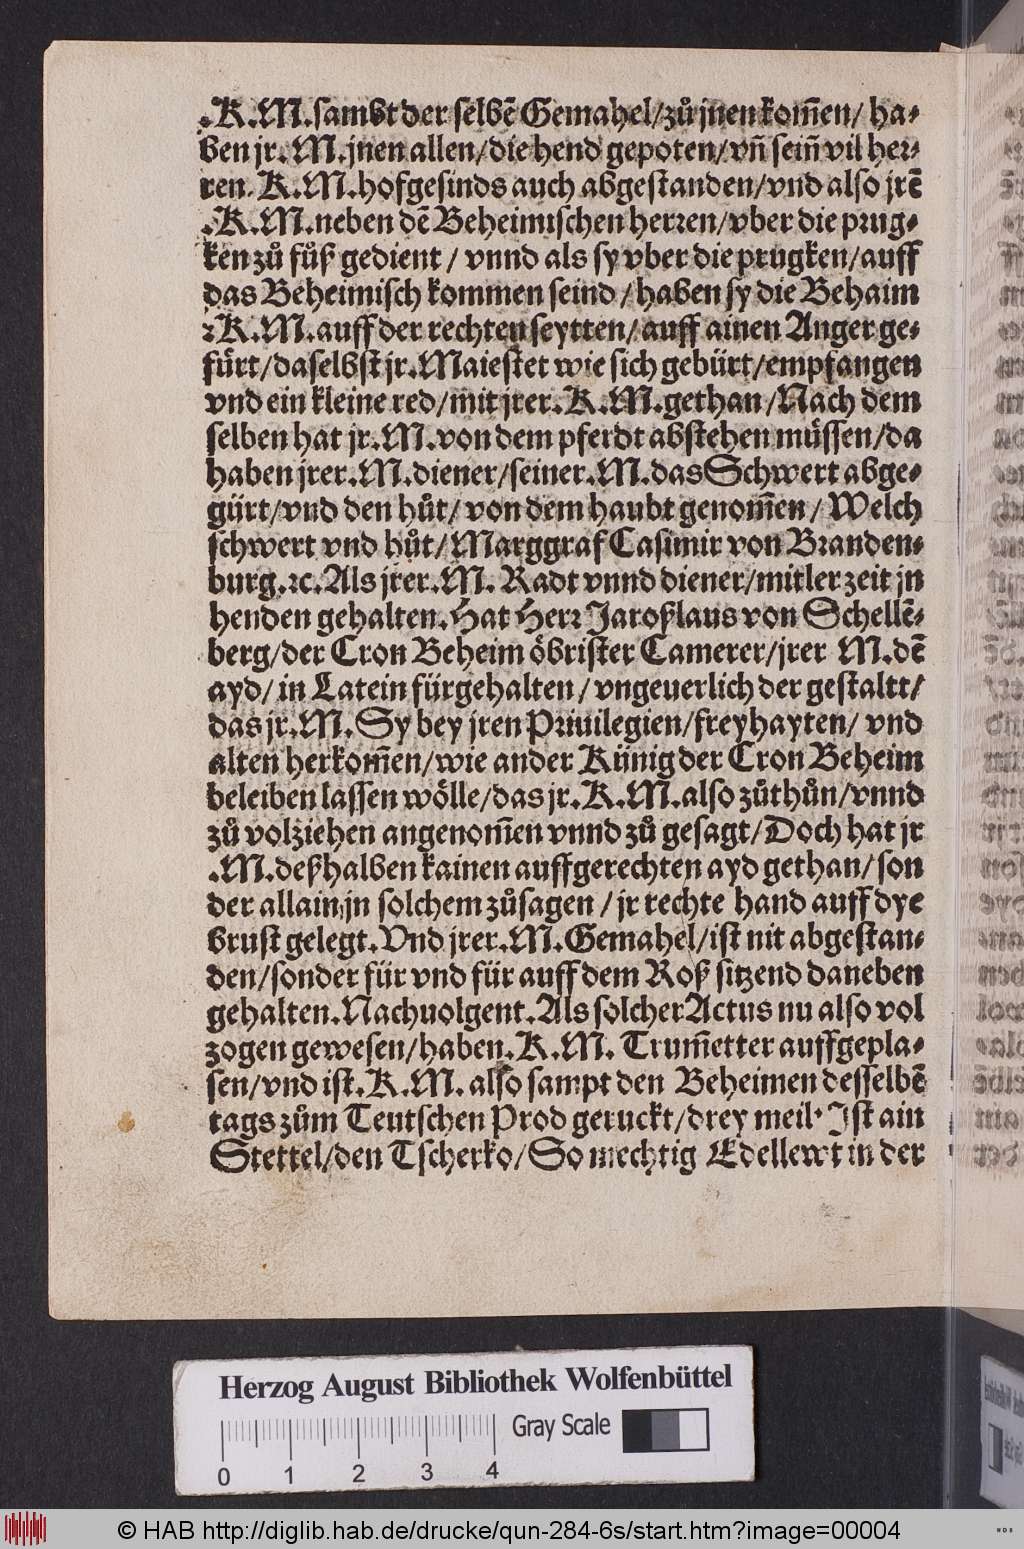 .K.M.sambt der selbẽ Gemahel/zů jnen kom̃en/ ha⸗
ben jr.M.jnen allen/die hend gepoten/vñ seiñ vil her⸗
ren.K.M.hofgesinds auch abgestanden/vnd also jrẽ
.K.M.neben dẽ Beheimischen herren/vber die prug⸗
ken zů fůß gedient / vnnd als sy vber die prugken/auff
das Beheimisch kommen seind / haben sy die Behaim
ꝛK.M.auff der rechten seytten/ auff ainen Anger ge⸗
fürt/daselbst jr.Maiestet wie sich gebürt/empfangen
vnd ein kleine red/mit jrer.K.M.gethan /Nach dem
selben hat jr.M.von dem pferdt abstehen müssen/da
haben jrer.M.diener/seiner.M.das Schwert abge⸗
gürt/vnd den hůt/ von dem haubt genom̃en / Welch
schwert vnd hůt/ Marggraf Casimir von Branden⸗
burg.ꝛc.Als jrer.M. Radt vnnd diener/mitler zeit jn
henden gehalten.Hat Herr Jaroßlaus von Schellẽ⸗
berg/der Cron Beheim öbrister Camerer/jrer M.dẽ
ayd/ in Latein fürgehalten / vngeuerlich der gestaltt/
das jr.M.Sy bey jren Priuilegien/freyhayten/ vnd
alten herkom̃en/wie ander Künig der Cron Beheim
beleiben lassen wölle/das jr.K.M.also zůthůn/vnnd
zů volziehen angenom̃en vnnd zů gesagt/Doch hat jr
.M.deßhalben kainen auffgerechten ayd gethan/son
der allain jn solchem zůsagen / jr rechte hand auff dye
brust gelegt.Vnd jrer.M.Gemahel/ist nit abgestan⸗
den/sonder für vnd für auff dem Roß sitzend daneben
gehalten.Nachuolgent.Als solcher Actus nu also vol
zogen gewesen/haben.K.M. Trum̃etter auffgepla⸗
sen/vnd ist.K.M.also sampt den Beheimen desselbẽ
tags zům Teutschen Prod geruckt/drey meil. Ist ain
Stettel/den Tscherko/So mechtig Edellewt in der
Herzog August Bibliothek Wolfenbüttel
Gray Scale
0 1 2 3 4
© HAB http://diglib.hab.de/drucke/qun-284-6s/start.htm?image=00004